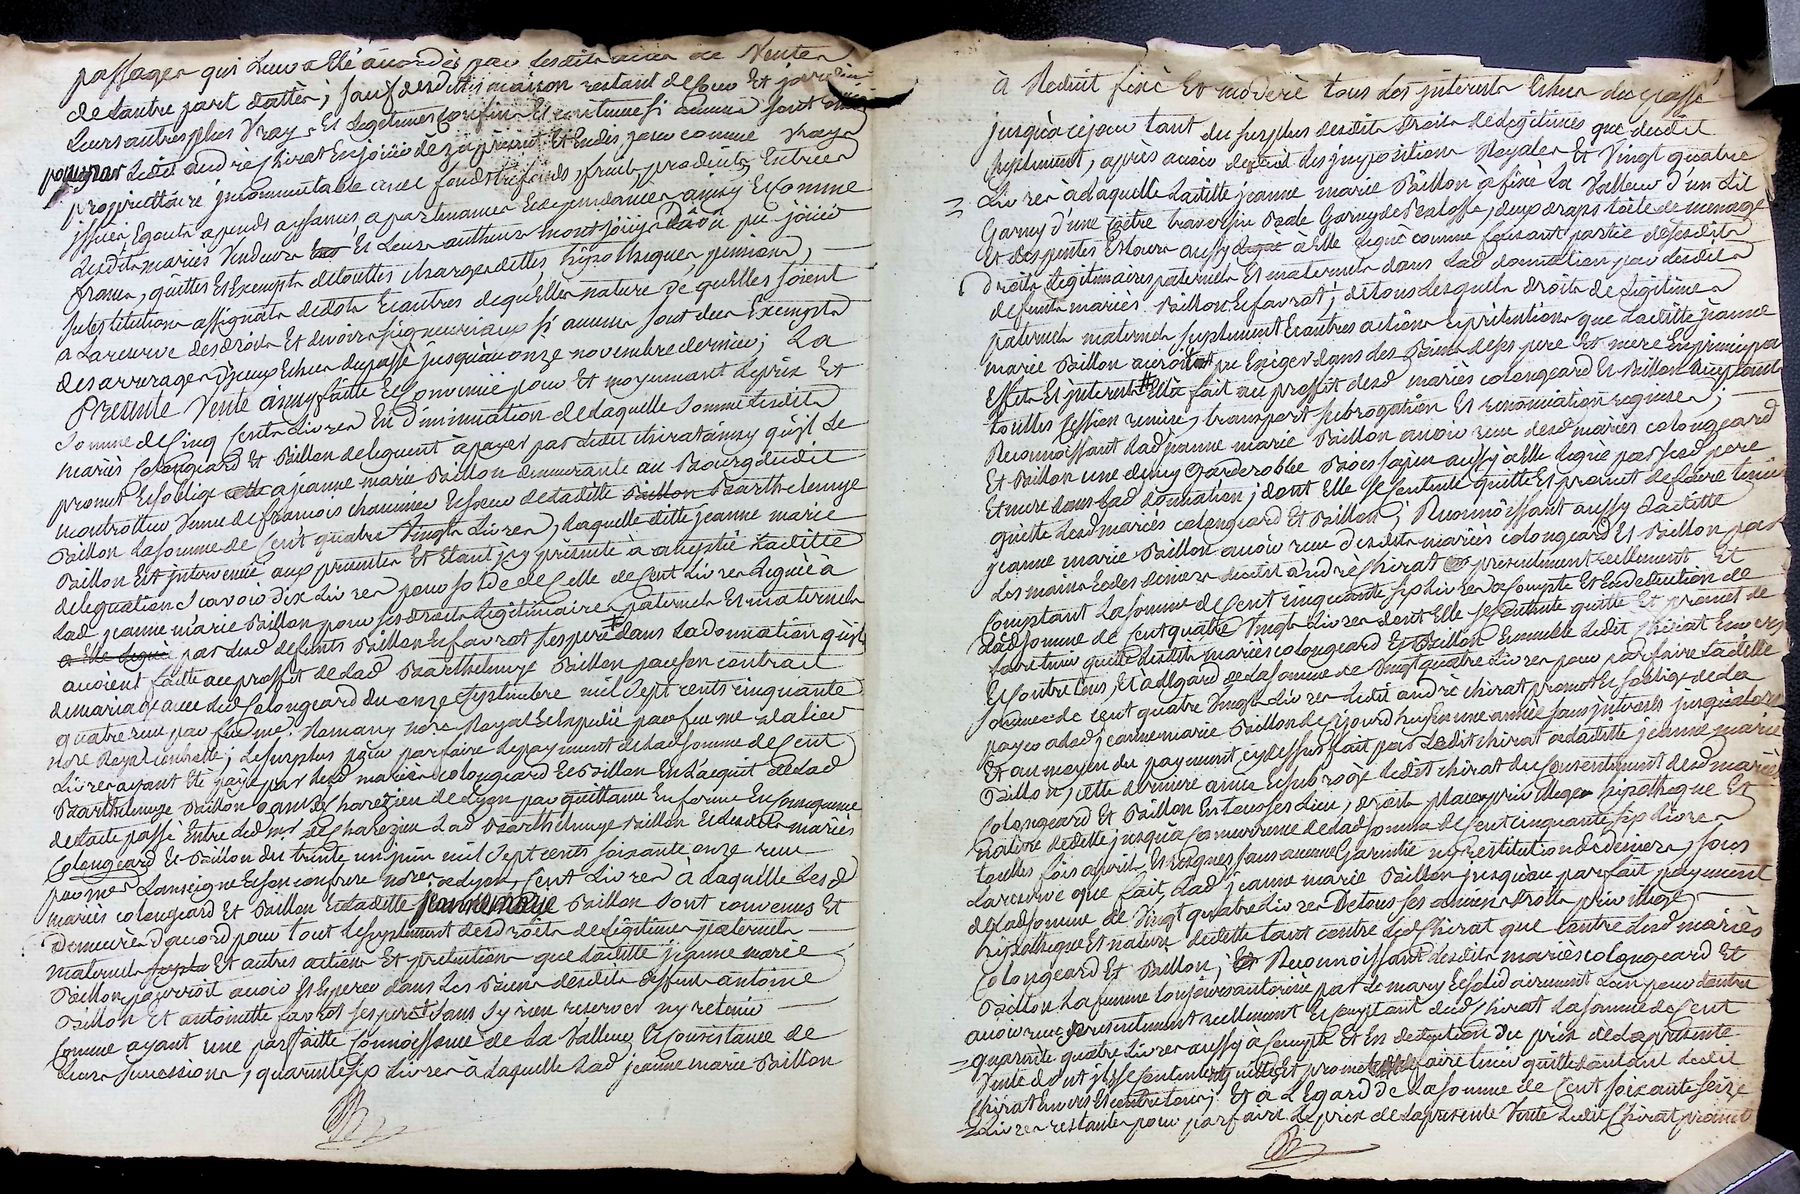 passages qui leur a été accordés par lesdits acies de Ventes
de dautre part dattés; sauf desdittes maison restant de leur Et jardin
Leurs autres plus Vrays Et Legitimes confins Et coutumes si aucuns sont
pour par Ledit andré chirat En jouir dès à présent Et Endisposer comme vrays
propriettaire jncommutable avec fonds trefonds, fruits produits Entrées
jssues Egouts apends aysances apartenances Et dependances ainsy Et Comme
Lesdits mariés Vendeurs Et Leurs autheurs En ont jouy du ou pu jouir
francs, quittes Et Exempts de touttes charges dettes hipotheques pensions,
substitutions assignats de dots Et autres de quelles nature Se quelles soient
a La reserve des droits Et devoirs seigneuriaux si aucuns sont dues Exempts
des arrerages d'yceux Echus du passé jusqu'au onze novembre dernier; La
Presente Vente ainsy faitte Et Convenüe pour Et moyennant Le prix Et
Somme de Cinq Cents Livres En diminution de laquelle Somme Lesdits
mariés Colongeard Et Paillon deleguent à payer par Ledit chirat ainsy qu'jl Le
promet Et soblige a jeanne marie Paillon demeurante au Bourg dudit
Montrottier Veuve de françois chaminier Et soeur de laditte Paillon Barthelemye
Paillon La Somme de Cent quatre Vingts Livres, Laquelle ditte jeanne marie
Paillon Est jntervenüe aux presentes Et Etant jcy présente à acceptée Laditte
deleguation Scavoir dix Livres pour solde de Celle de Cent Livres Leguée à
Lad. jeanne marie Paillon pour ses droits Legitimaires paternels Et maternels
a Elle Legué par Lesd. defunts Paillon Et favrot ses pere dans La donnation qu'jls
avoient faitte au proffit de Lad. Barthelemye Paillon par son contrat
de mariage avec Led. Colongeard du onze Septembre mil sept cents cinquante
quatre reçu par feu me. Remany nore Royal Et Expedié par feu me
nore Royal ; Le surplus pour parfaire Le payement de Lad. Somme de Cent
Livres ayant Eté payé par Lesd. mariés Colongeard Et Paillon En L'acquit de Lad.
Barthelemye Paillon de Lyon par quittance En forme En Consequence
de Lacte passé Entre Led. Lad. Barthelemye Paillon Et Lesdits mariés
Colongeard Et Paillon du trente un juin mil Sept cents soixante onze reçu
par me Lanseigne Et son confrere nores a Lyon, Cent Livres à Laquelle Les d.
mariés colongeard Et Paillon Et Laditte jeanne marie Paillon Sont convenus Et
demeurés d'accord pour tout Le suplement des droits de Légitimes paternels
maternels suple Et autres actions Et pretentions que Laditte jeanne marie
Paillon pourroit avoir Et Esperer dans Les Biens desdits deffunts antoine
Paillon Et antoinette favrot ses peres Sans Sy rien reserver ny retenir
Comme ayant une parfaitte Connoissance de La Valleur Et Consistance de
Leurs Successions, quarante six Livres à Laquelle Lad. jeanne marie Paillon
à Reduit fixé Et modéré tous Les jnterests Echus du passé
jusqu'à ce jour tant du surplus desdits droits de Legitimes que dudit
supléement, après avoir deduit Les jmpositions Royales Et Vingt quatre
Livres à Laquelle Laditte jeanne marie Paillon à fixé La Valleur d'un Lit
Garny d'une Coëtre traversin Basle Garny de Baloffe, deux draps toile de menage
Et des pentes Et tours aussy Legué à Elle Legué comme faisant partie desdits
Droits Legitimaires paternels Et maternels dans Lad. donnation par Lesdits
defunts mariés Paillon Et favrot; de tous Lesquels droits de Legitimes
paternels maternels suplement Et autres actions Et pretentions que Laditte jeanne
marie Paillon auroit pu Exiger dans Les Biens de ses pere Et mere En principaux
Effets Et jnterets Elle à fait au proffit desd. mariés colongeard Et Paillon acceptants
touttes Cession remise, transport subrogation Et renonciation requises;
Reconnoissant Lad. jeanne marie Paillon avoir reçu desd. mariés colongeard
Et Paillon une demy Garderobbe Bois sapin aussy a Elle Legué par Sesd. pere
Et mere dans Lad. donnation; dont Elle Se Contente quitte Et promet de faire tenir
quitte Lesd. mariés colongeard Et Paillon; Reconnoissant aussy Laditte
jeanne marie Paillon avoir reçu desdits mariés colongeard Et Paillon par
Les mains Et des deniers dudit andré chirat presentement reellement Et
Comptant La Somme de Cent cinquante six Livres à Compte Et En deduction de
Lad. Somme de Cent quatre Vingts Livres dont Elle Se Contente quitte Et promet de
faire tenir quitte Lesdits mariés colongeard Et Paillon Ensemble Ledit Chirat Envers
Et Contre tous, Et à Legard de La Somme de Vingt quatre Livres pour parfaire Laditte
Somme de Cent quatre Vingt Livres Ledit andré chirat promet Et soblige de La
payer à Lad. jeanne marie Paillon de ce jourd'huy En une année sans jnterests jusqu'alors
Et au moyen du payement cydessus fait par Ledit chirat à Laditte jeanne marie
Paillon, Cette derniere à mis Et subrogé Ledit chirat du Consentement desd. mariés
Colongeard Et Paillon En tous ses Lieu, droits Place privileges hipotheque Et
nature de dette jusqu'à Concurrence de Lad. Somme de Cent cinquante six Livres
touttes fois aprés Et sans aucune Garantie ny restitution de deniers, sous
La reserve que fait Lad. jeanne marie Paillon jusqu'au parfait payement
de Lad. Somme de Vingt quatre Livres De tous ses anciens droits privilege
hipotheque Et nature de dette tant contre Led. Chirat que Contre Lesd. mariés
Colongeard Et Paillon; Reconnoissant Lesdits mariés colongeard Et
Paillon La femme toujours autorisée par Le mary Et solidairement Lun pour Lautre
avoir reçu presentement reellement Et Comptant dud. Chirat La Somme de Cent
quarante quatre Livres aussy à Compte Et En deduction du prix de La présente
Vente dont jls se Contentent quittent Et promettent faire tenir quitte d'autant Ledit
Chirat Envers Et contre tous; Et à L'égard de La Somme de Cent soixante seize
Livres restantes pour parfaire Le prix de La presente Vente Ledit Chirat promet